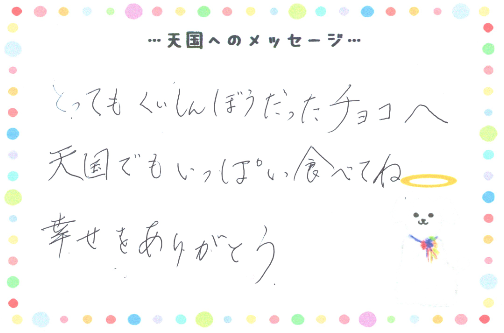 …天国へのメッセージ…
とってもくいしんぼうだったチョコへ
天国でもいっぱい食べてね
幸せをありがとう